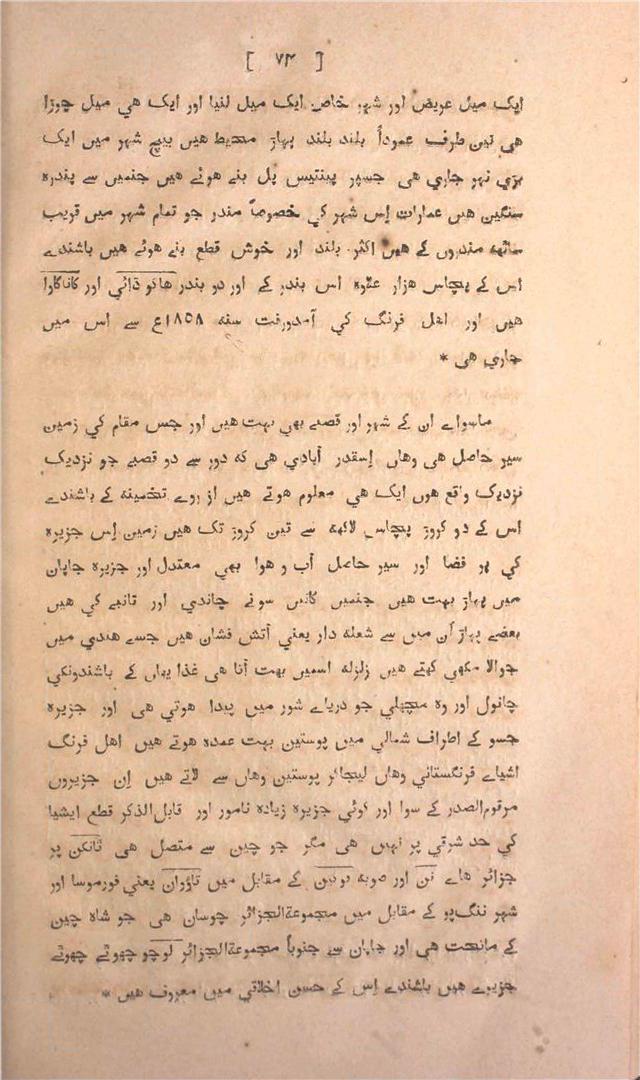 [ ۷۳ ]
ایک میل عریض اور شہر خاص ایک میل لنبا اور ایک هي میل چوڑا
هي تین طرف عموداً بلند بلند پہاڑ محیط هیں بیچ شہر میں ایک
بڑي نہر جاري هي جسپر پینتیس پل بنے هوئے هیں جنمیں سے پندره
سنگین هیں عمارات اِس شہر کي خصوصاً مندر جو تمام شہر میں قریب
ساٹهہ مندروں کے هیں اکثر بلند اور خوش قطع بنے هوئے هیں باشندے
اس کے پچاس هزار علاوه اس بندر کے اور دو بندر هاکو ڈاٹي اور کاناگارا
هیں اور اهل فرنگ کي آمدورفت سنه ۱۸۵۸ع سے اس میں
جاري هي *
ماسواے ان کے شہر اور قصبے بهي بہت هیں اور جس مقام کي زمین
سیر حاصل هي وهاں اِسقدر آبادي هي که دور سے دو قصبے جو نزدیک
نزدیک واقع هوں ایک هي معلوم هوتے هیں از روے تخمینه کے باشندے
اس کے دو کروڑ پچاس لاکهہ سے تین کروڑ تک هیں زمین اِس جزیره
کي پر فضا اور سیر حاصل آب و هوا بهي معتدل اور جزیره جاپان
میں پہاڑ بہت هیں جنمیں کانیں سونے چاندي اور تانبے کي هیں
بعضے پہاڑ اُن میں سے شعله دار یعني آتش فشان هیں جسے هندي میں
جوالا مکهي کہتے هیں زلزله اسمیں بہت آتا هي غذا یہاں کے باشندونکي
چانول اور وه مچهلي جو دریاے شور میں پیدا هوتي هي اور جزیره
جسو کے اطراف شمالي میں پوستین بہت عمده هوتے هیں اهل فرنگ
اشیاے فرنگستاني وهاں لیجاکر پوستین وهاں سے لاتے هیں اِن جزیروں
مرقوم‌الصدر کے سوا اور کوئي جزیره زیاده نامور اور قابل‌الذکر قطع ایشیا
کي حد شرقي پر نہیں هي مگر جو چین سے متصل هي ٹانکن پر
جزائر هاے نن اور صوبه فوکین کے مقابل میں تاؤوان یعني فورموسا اور
شہر ننگ‌پو کے مقابل میں مجموعةالجزائر چوسان هي جو شاه چین
کے ماتحت هي اور جاپان سے جنوباً مجموعةالجزائر لوچو چهوٹے چهوٹے
جزیرے هیں باشندے اِس کے حسن اخلاقي میں معروف هیں *